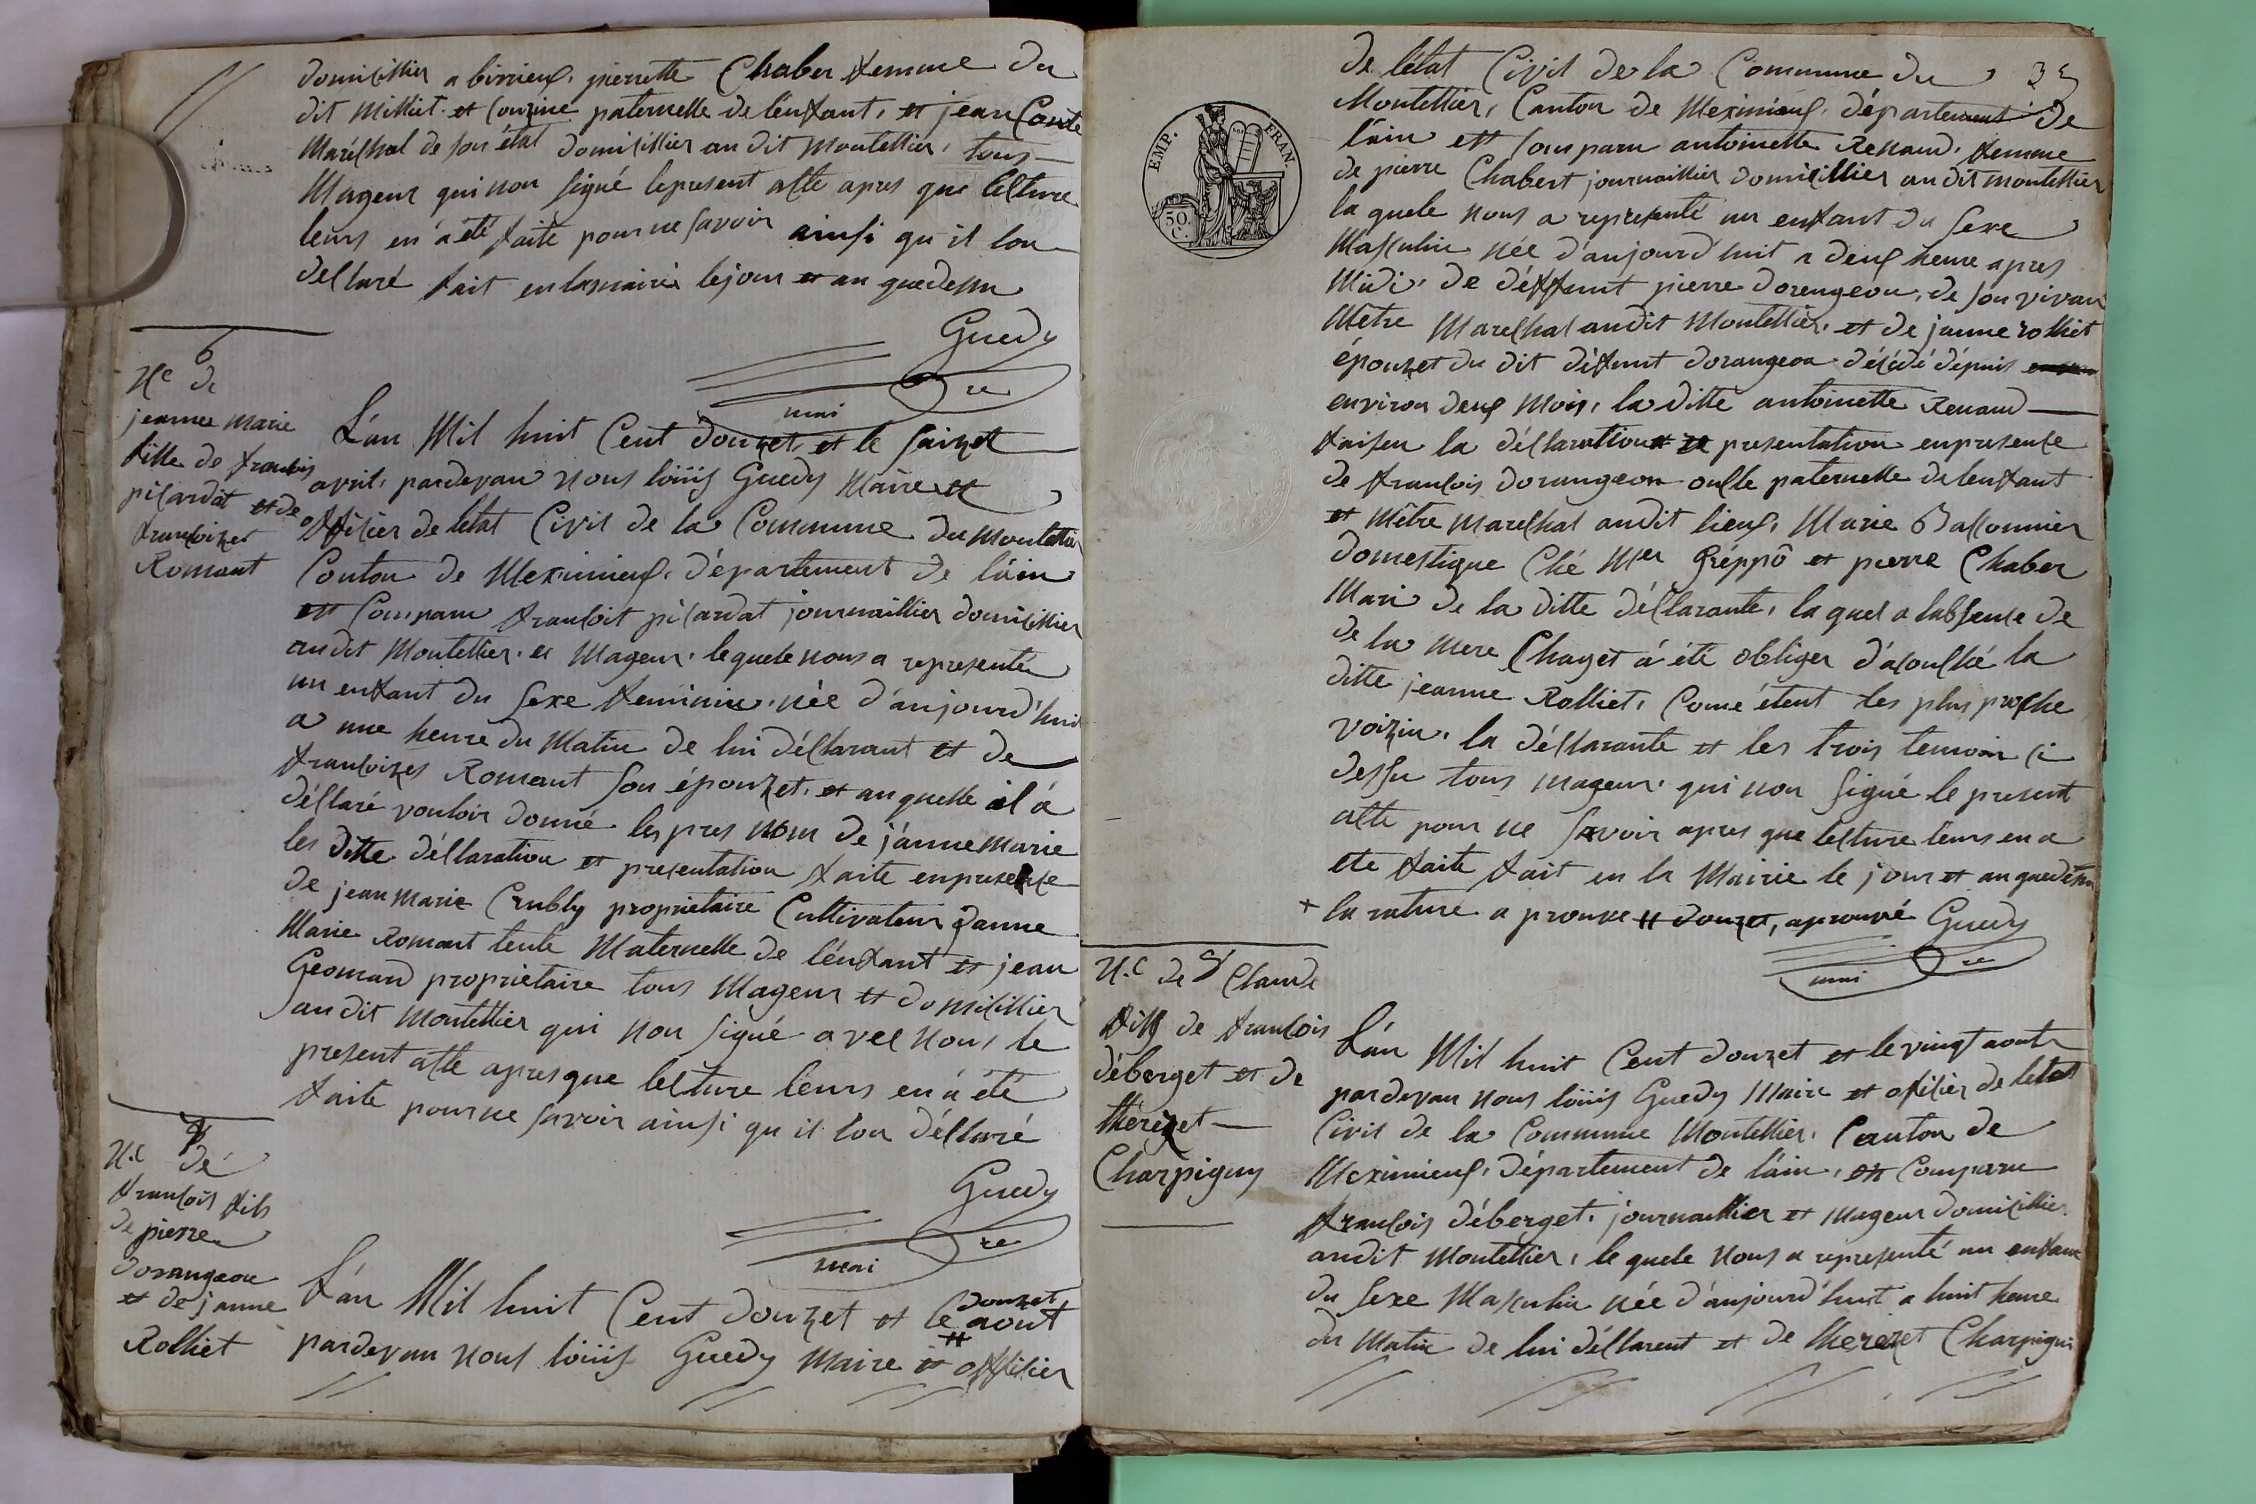 domicillier a birrieuf, pierrette Chaber femme du
dit Milliet et Couzine paternelle de lenfant, et jean Conte
Maréchal de son état domicillier au dit montellier, tous
Mageur qui non signé le present acte apres que lecture
leurs en a été faite pour ne savoir ainsi qu'il lon
declaré fait en la mairie le jour et an que dessu
Guedy
maire
6
Nce de
jeanne marie
fille de francois
picardat et de
francoizes
Romant
L'an Mil huit Cent douzet, et le saizet
avril, pardevan nous loüis Guedy Maire et
officier de letat Civil de la Commune du montellier
Canton de Meximieuf, département de l'ain
est Comparu francoit picardat journaillier domicillier
audit Montellier, et Mageur, le quele nous a representé
un enfant du sexe feminin, née d'aujourd'hui
a une heure du Matin de lui déclarant et de
francoizes Romant son épouzet, et au quelle il a
déclaré vouloir donné les pres nom de jánne marie
les ditte déclaration et presentation faite en presence
de jean marie Crubly propriétaire Cultivateur janne
Marie Romant tente Maternelle de lénfant et jean
Geomard propriétaire tous Mageur et domicillier
au dit montellier qui non signé avec nous le
present acte apres que lecture leurs en a été
faite pour ne savoir ainsi qu il lon déclaré
Guedy
maire
7
N.ce dé
francois fils
de pierre
dorangeon
et de janne
Rolliet
L'an Mil huit Cent douzet et le douzet aout
pardevan nous loüis Guedy maire et officier
35
de létat Civil de la Commune du
Montellier, Canton de Meximieuf, département de
láin est Comparu antoinette Renaud, femme
de pierre Chabert journaillier domicillier au dit montellier
la quele nous a representé un enfant du sexe
Masculin née d'aujourd'huit a deuf heure apres
Midi, de déffunt pierre dorengeon, de son vivan
Métre Marechal audit Montellier, et de janne rolliet
épouzet du dit défunt dorangeon décédé dépuis
environ deuf mois, la ditte antoinette Renaud
faiseu la déclaration et presentation en presence
de francois dorangeon oncle paternelle de lenfant
et métre marechal audit lieuf, Marie Ballonnier
domestique Ché Mer Gréppô et pierre Chaber
Mari de la ditte déclarante, la quel a labsence de
de la mere Chaget á été obliger d'acouché la
ditte jeanne Rolliet, Come étent les plus proche
voizin, la déclarante et les trois temoin ci
dessu tous mageur, qui non signé le present
acte pour ne savoir apres que lecture leurs en a
ete faite fait en la Mairie le jour et an que dessu
+ la rature a prouve # douzet, aprouvé Guedy
maire
EMP. FRAN.
50 C.
N.ce de 8 Claude
fils de francois
déberget et de
thérizet
Charpigny
L'án Mil huit Cent douzet et le vingt aout
pardevan nous loüis Guedy Maire et oficier de letat
Civil de la Commune Montellier, Canton de
Meximieuf, département de láin, est Comparu
francois déberget, journaillier et mageur domicillier
audit montellier, le quele nous a representé un enfant
du sexe Masculin née d'aujourd'huit a huit heure
du matin de lui déclarent et de therezet Charpigni